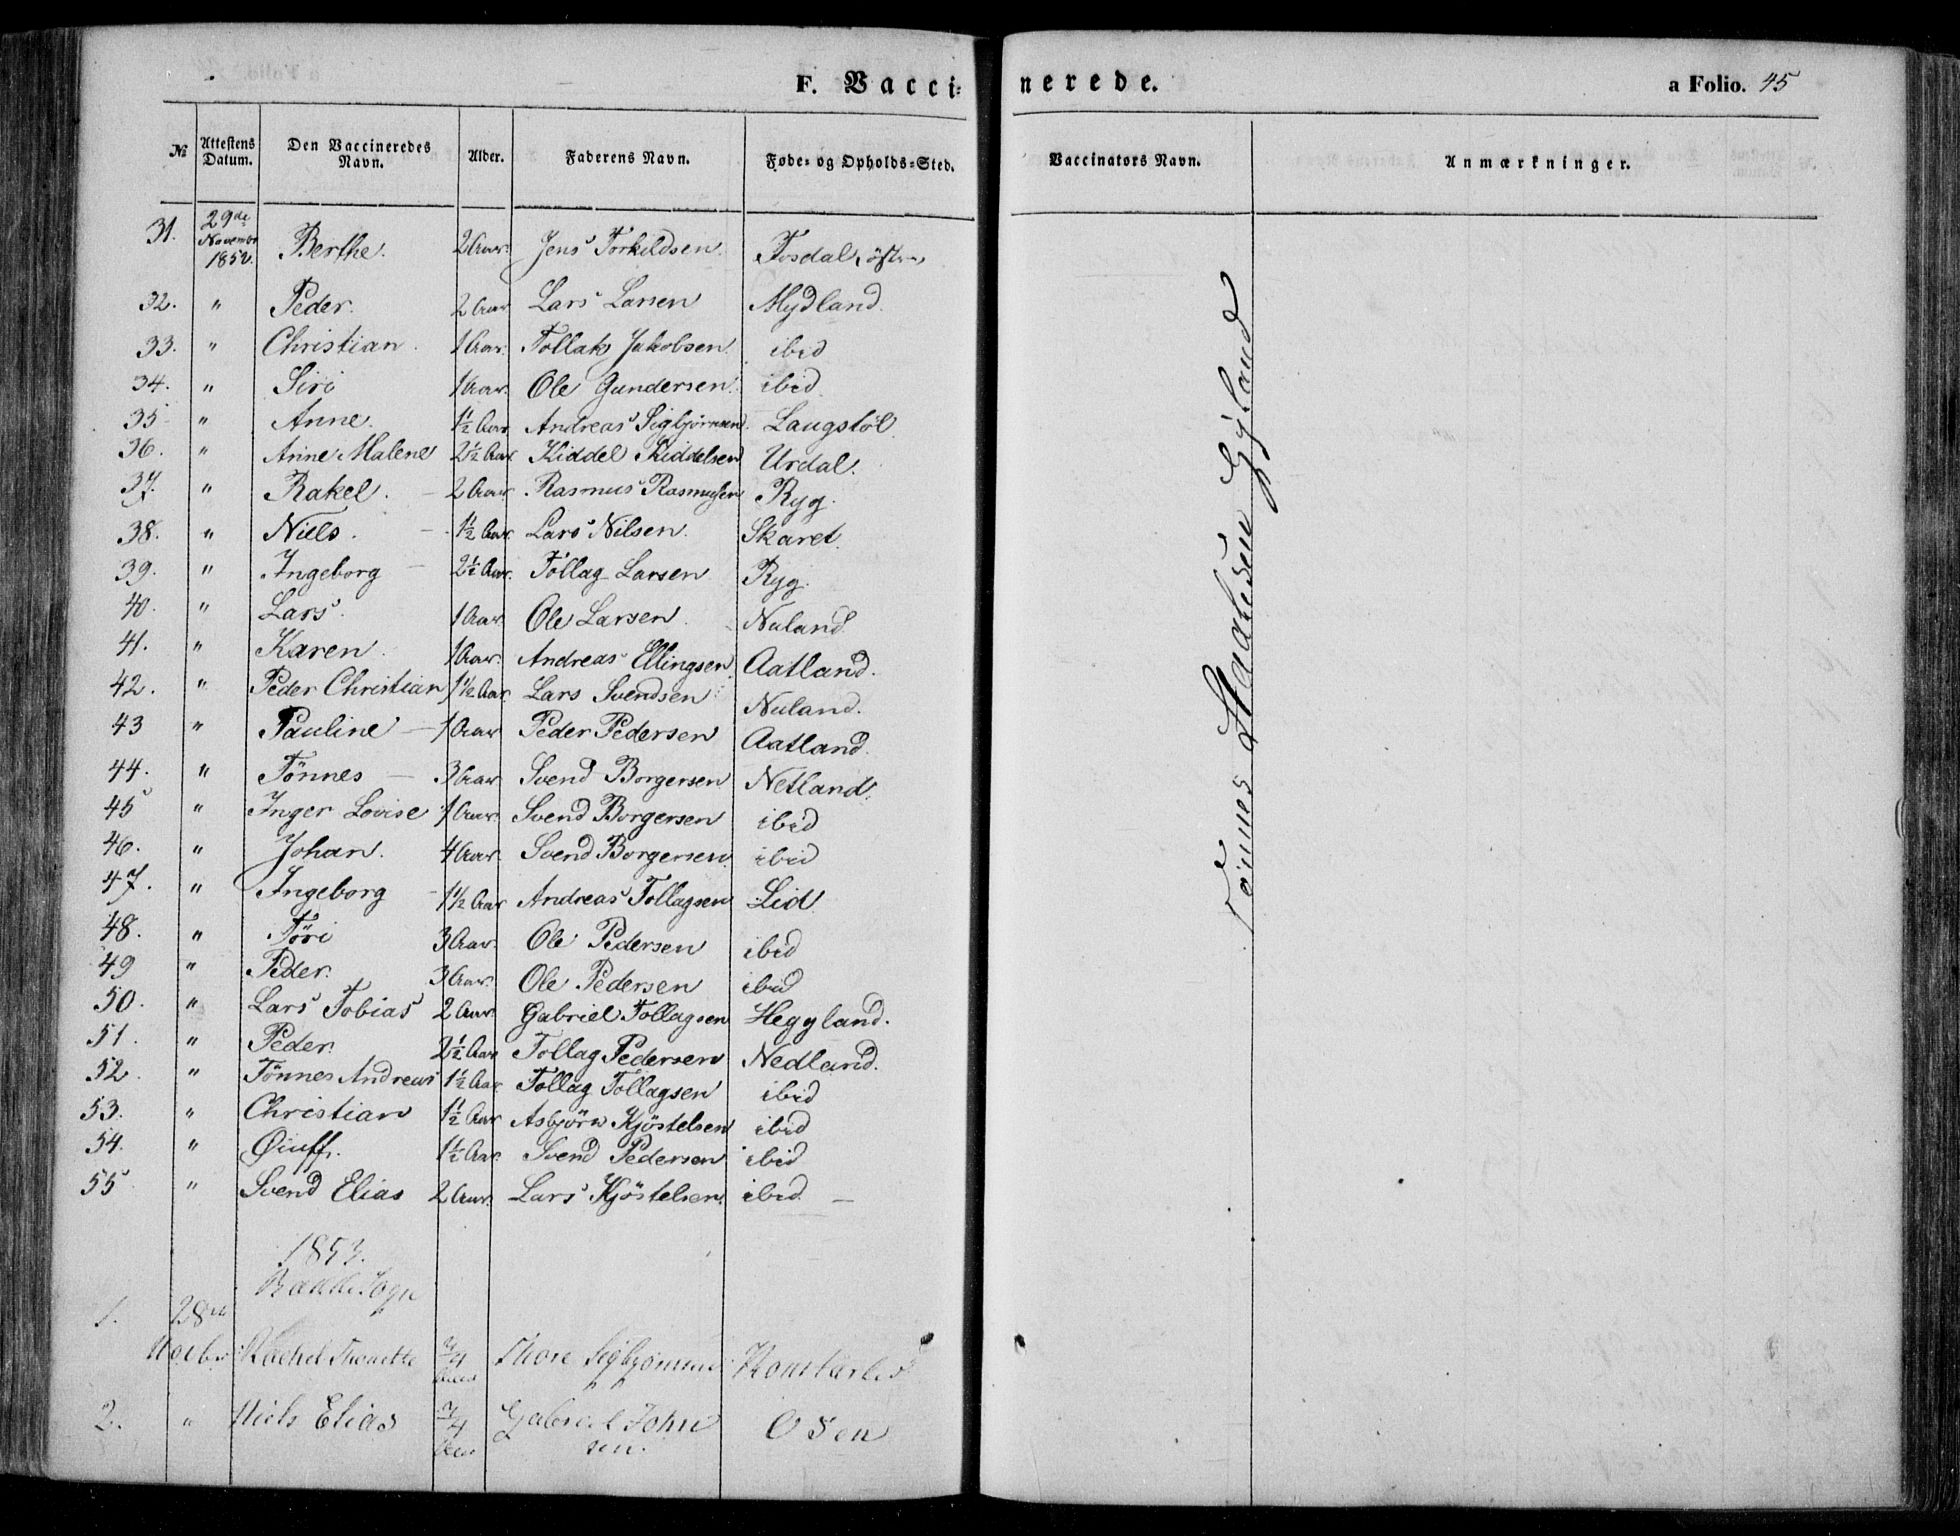 F. Vaccinerede. a Folio. 45
№ Attestens Datum. Den Vaccineredes Navn. Alder. Faderens Navn. Føde- og Opholds-Sted. Vaccinators Navn. Anmærkninger.
31. 29de Novembr 1852. Berthe. 2 Aar. Jens Torkildsen. Tosdal, østre
32. " Peder. 2 Aar Lars Larsen Mydland.
33. " Christian. 1 Aar. Tollak Jakobsen ibid
34. " Siri 1 Aar. Ole Gundersen ibid.
35 " Anne. 1½ Aar Andreas Sigbjørnsen. Laugstøl
36. " Anne Malene 2½ Aar Kiddel Kiddelsen Urdal.
37. " Rakel. 2 Aar Rasmus Rasmussen Ryg.
38. " Niels. 1½ Aar Lars Nilsen. Skaret.
39. " Ingeborg 2½ Aar. Tollag Larsen Ryg.
40. " Lars. 1 Aar. Ole Larsen. Nuland.
41. " Karen. 1 Aar. Andreas Ellingsen. Aatland.
42. " Peder Christian 1½ Aar. Lars Svendsen Nuland.
43 " Pauline 1 Aar Peder Pedersen Aatland.
44. " Tönnes 3 Aar Svend Borgersen Netland.
45 " Inger Lovise 1 Aar. Svend Borgersen ibid
46. " Johan. 4 Aar. Svend Borgersen. ibid
47. " Ingeborg 1½ Aar Andreas Tollagsen Lid
48. " Töri 3 Aar. Ole Pedersen ibid
49 " Peder. 3 Aar. Ole Pedersen ibid
50. " Lars Tobias 2 Aar. Gabriel Tollagsen Heggland.
51. " Peder. 2½ Aar Tollag Pedersen Nedland.
52. " Tönnes Andreas 1½ Aar Tollag Tollagsen ibid
53. " Christian 1½ Aar Asbjörn Kjöstelsen ibid
54. " Øiuff. 1½ Aar. Svend Pedersen ibid
55 " Svend Elias 2 Aar. Lars Kjöstelsen. ibid.
Tönnes Staalesen Gyland
1853.
Bakke Sogn
1. 28de
Rachel 3/4 Thore Sigbjörnsen
2. " Niels Elias 3/4 Gabriel John
sen. Osen